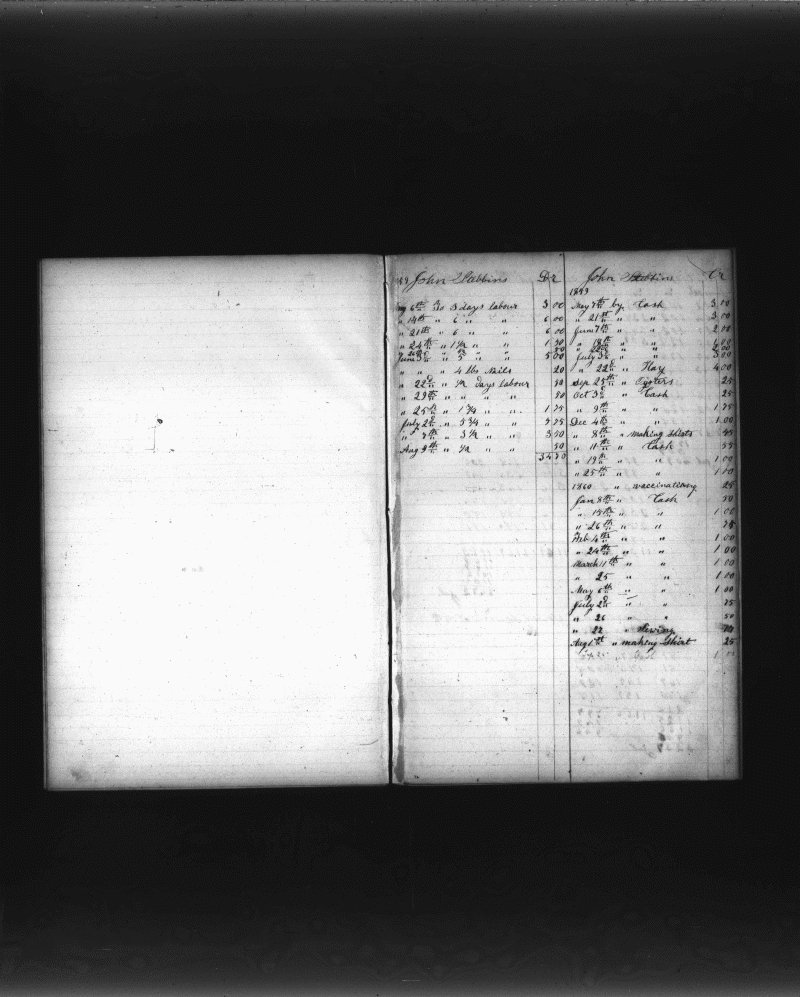 John Stebbins Dr
6th To 3 days labour 3 00
" 14th " 6 " " 6 00
" 21st " 6 " " 6 00
" 24th " 1 1/2 " " 1 50
June 3d " 5 " " 5 00
" " " 4 lbs Nails 20
" 22d " 1/2 days labour 50
" 23th " " " " 50
" 25th " 1 3/4 " " 1 75
July 2d " 5 3/4 " " 5 75
" 7th " 3 1/2 " " 3 50
Aug 9th " 1/2 " " 50
John Stebbins Cr
May 7th by Cash 3 00
" 21st " " 3 00
June 7th " " 2 00
" 18th " "
July 3d " " 3 00
" 22d " Hay 4 00
Sep 25th " Oysters 25
Oct 3d " Cash 25
" 9th " " 1 75
Dec 4th " " 1 00
" 8th " making Shirts
" 11th " Cash
" 19th " " 1 00
" 25th " " 1 00
1860 " vaccinationg 25
Jan 8th " Cash 50
" 15th " " 1 00
" 26th " " 75
Feb 4th " " 1 00
" 24th " " 1 00
March 11th " " 1 00
" 25 " " 1 00
May 6th " " 1 00
July 2d " " 75
" 26 " " 50
" 22 "
Aug 1st " making Shirt 25